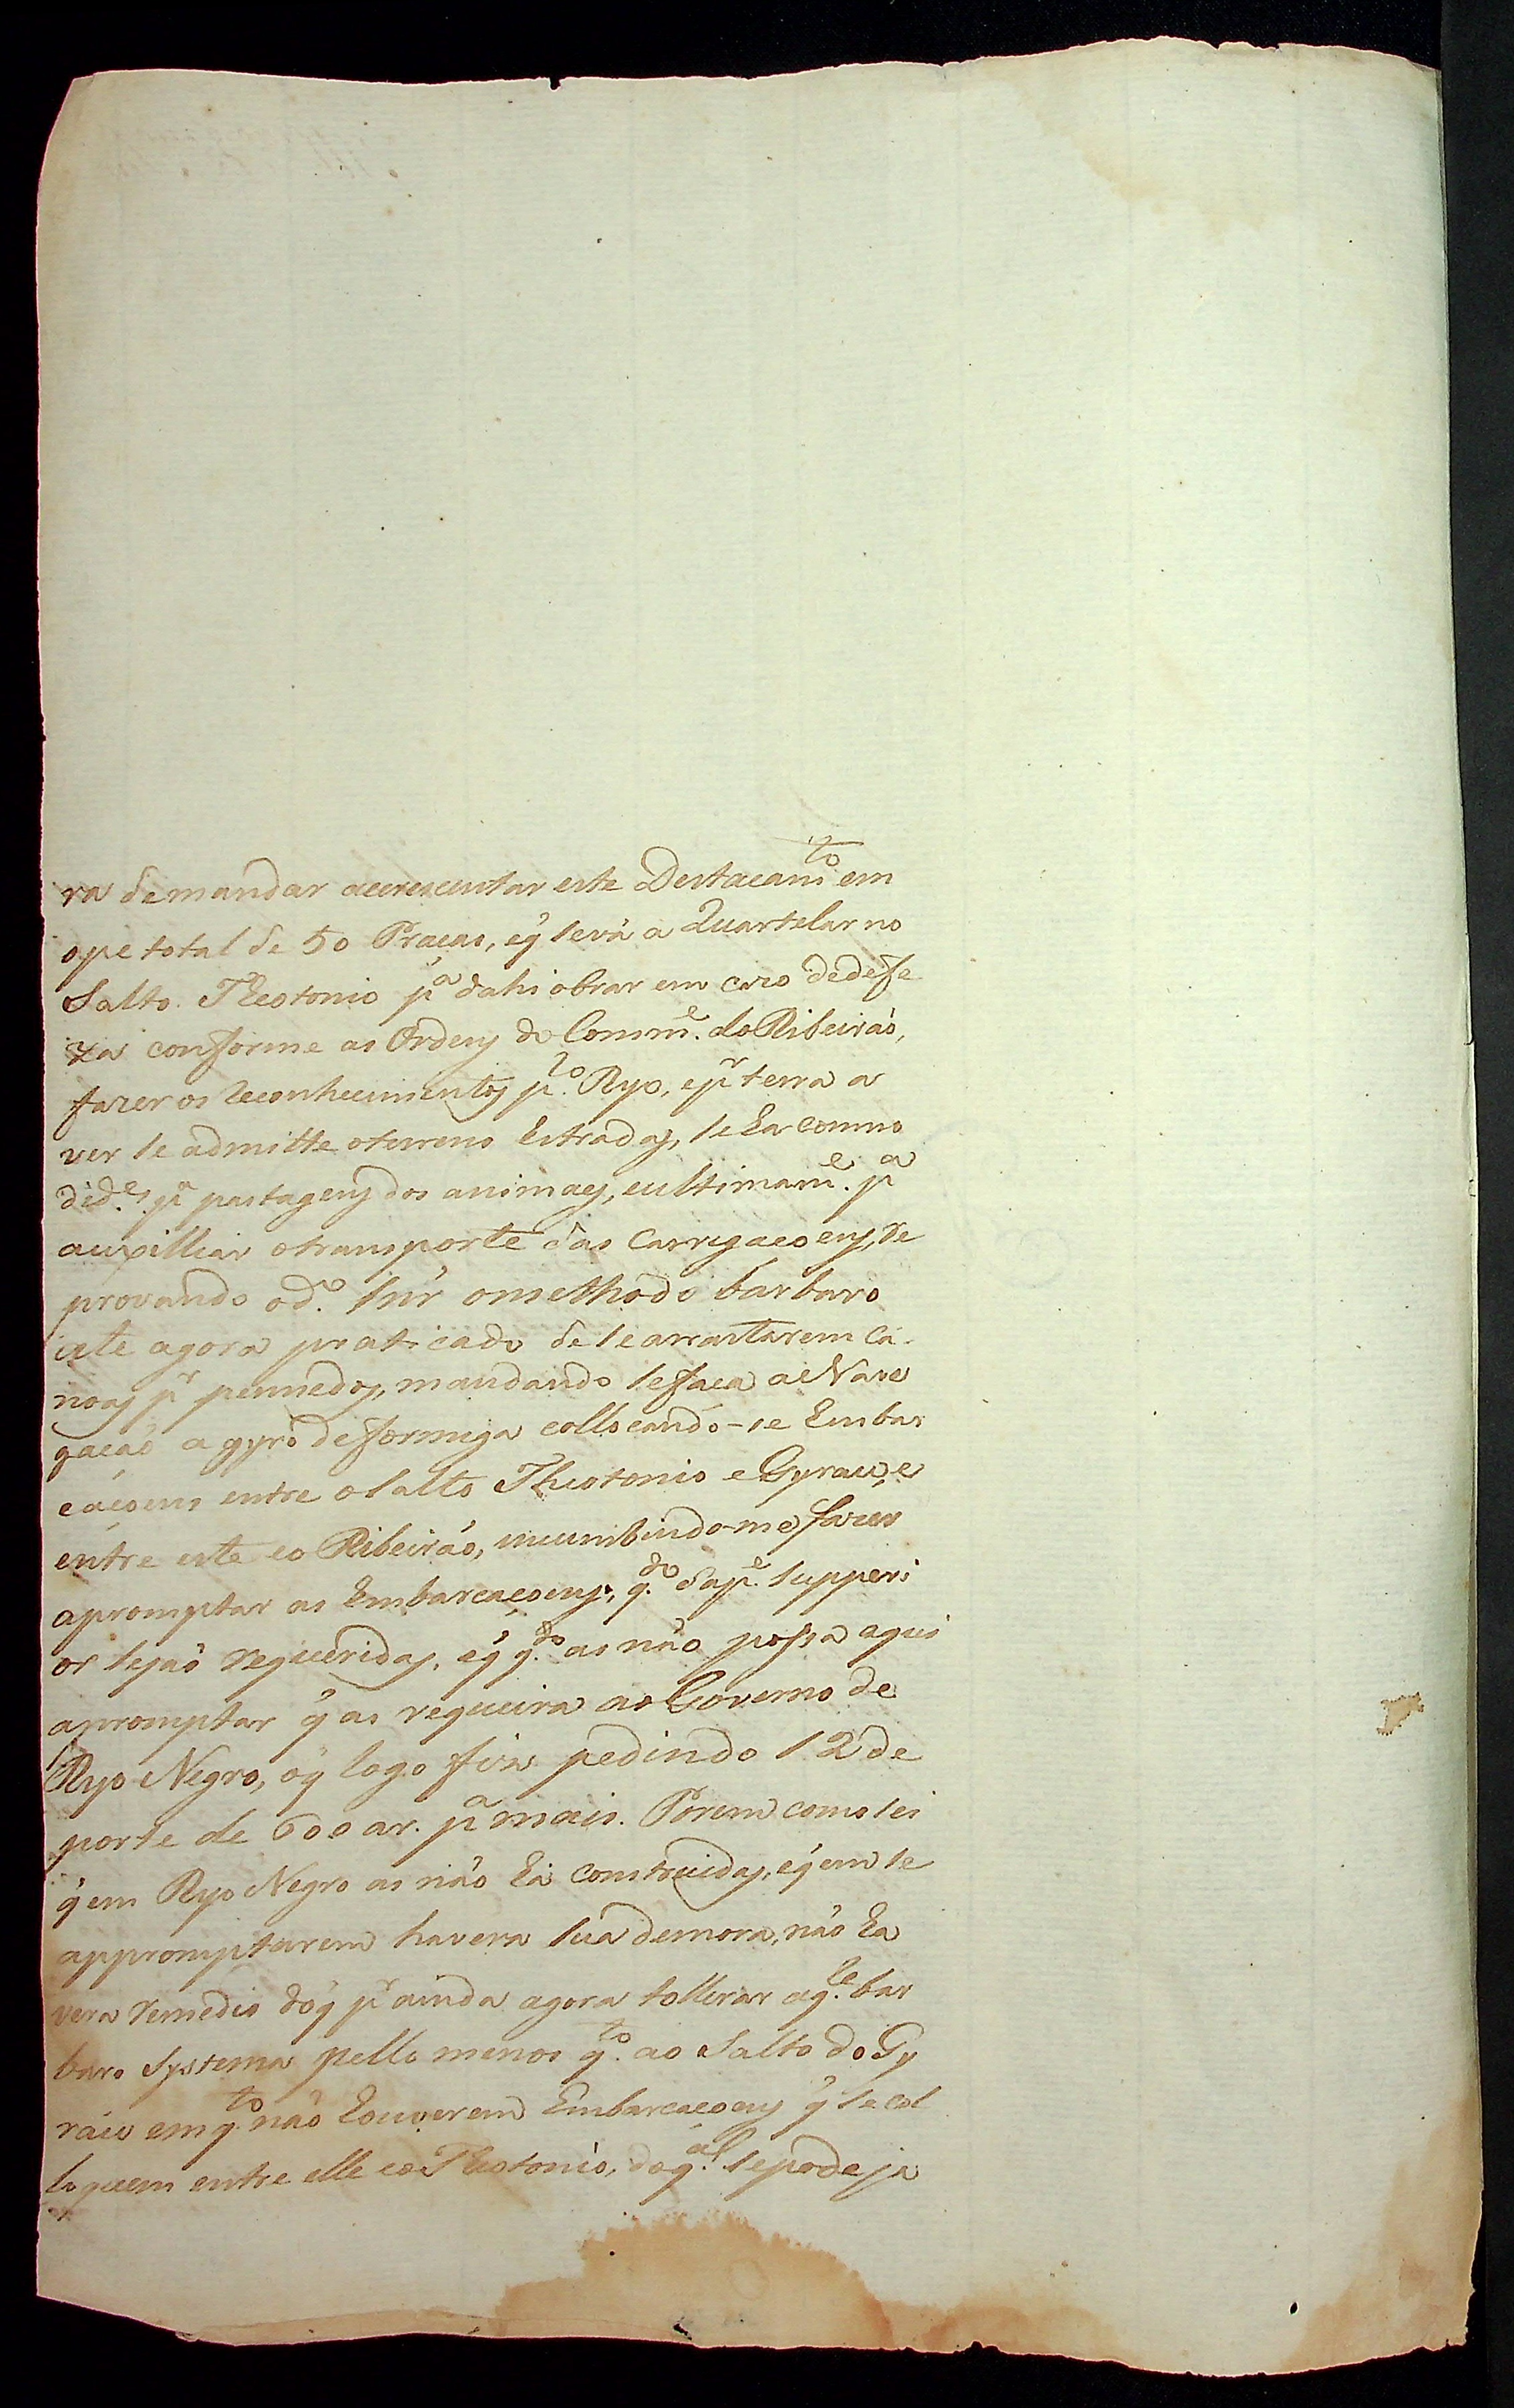 ra de mandar accrescentar este Destacam.to em
o pe total de 50 Praças, e q̃ se vá a Quartelar no
Salto Theotonio p.a dahi obrar em cazo de defe
za conforme as Ordens do Comm.e do Ribeirão,
fazer os reconhecimentos p.lo Ryo, e p.r terra a
ver se admitte o terreno Estradas, se ha como
did.es p.a pastagens dos animaes, e ultimam.e p.a
auxilliar o transporte das Carregaçoens, re
provando o d.o Snr̃ o methodo barbaro
ate agora praticado de se arrastarem Ca-
noas p.r pennedos, mandando se faça a Nave
gação a gyro de formiga collocando-se Embar
caçoens entre o Salto Theotonio e Gyrau, e
entre este e o Ribeirão, incumbindo-me fazer
apromptar as Embarcaçoens, q.do da p.e Supperi
or sejão requeridas, e q̃ q.do as não possa aqui
apromptar q̃ as requeira ao Governo de
Ryo Negro, o q̃ logo fiz pedindo 12 de
porte de 600 ar. p.a mais. Porem como sei
q̃ em Ryo Negro as não há construidas, e q̃ em se
appromptarem havera sua demora, não ha
vera remedio do q̃ p.r ainda agora tollerar aq.le bar
baro Systema pello menos q.to ao Salto do Gy
ráu em q.to não houverem Embarcaçoens q̃ se col
loquem entre elle e o Theotonio, do q.al se pode ja